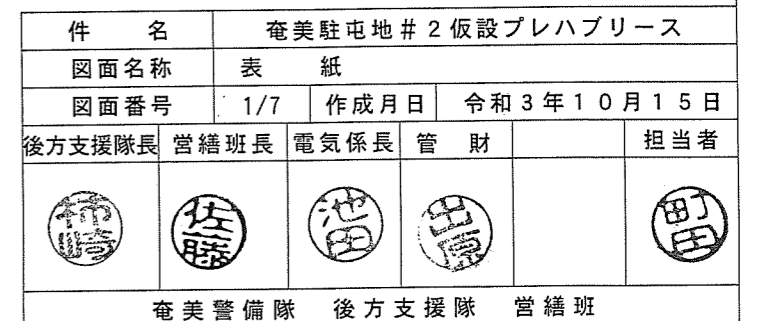 件　　名　奄美駐屯地＃２仮設プレハブリース
図面名称　表　　紙
図面番号　1/7　作成月日　令和３年１０月１５日
後方支援隊長　営繕班長　電気係長　管　財　担当者
柿崎　佐藤　池田　出原　町田
奄美警備隊　後方支援隊　営繕班